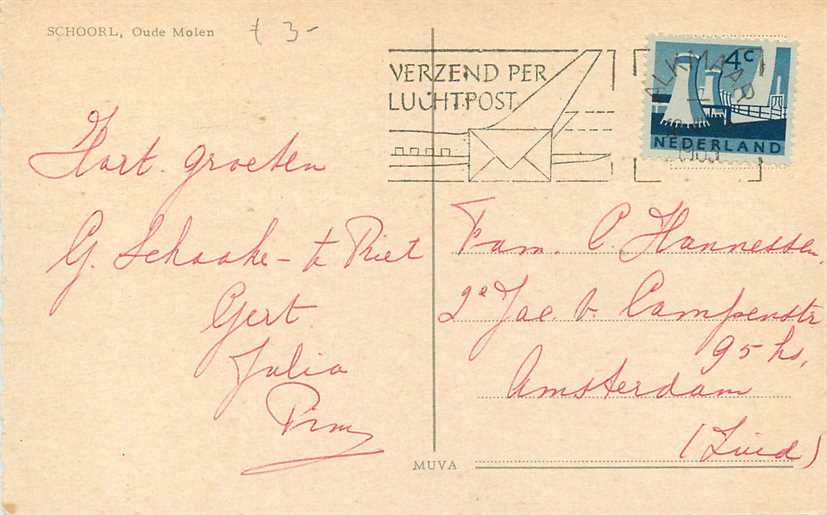 SCHOORL, Oude Molen
f 3-
VERZEND PER
LUCHTPOST
ALKMAAR
4c
NEDERLAND
Hart. groeten
G. Schaake - te Riet
Gert
Julia
Pim
Fam. C. Hannessen,
2e Jac. v. Campenstr
95 hs,
Amsterdam
(Zuid)
MUVA